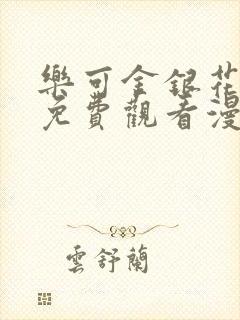 樂可金銀花
免費觀看漫
雲舒蘭